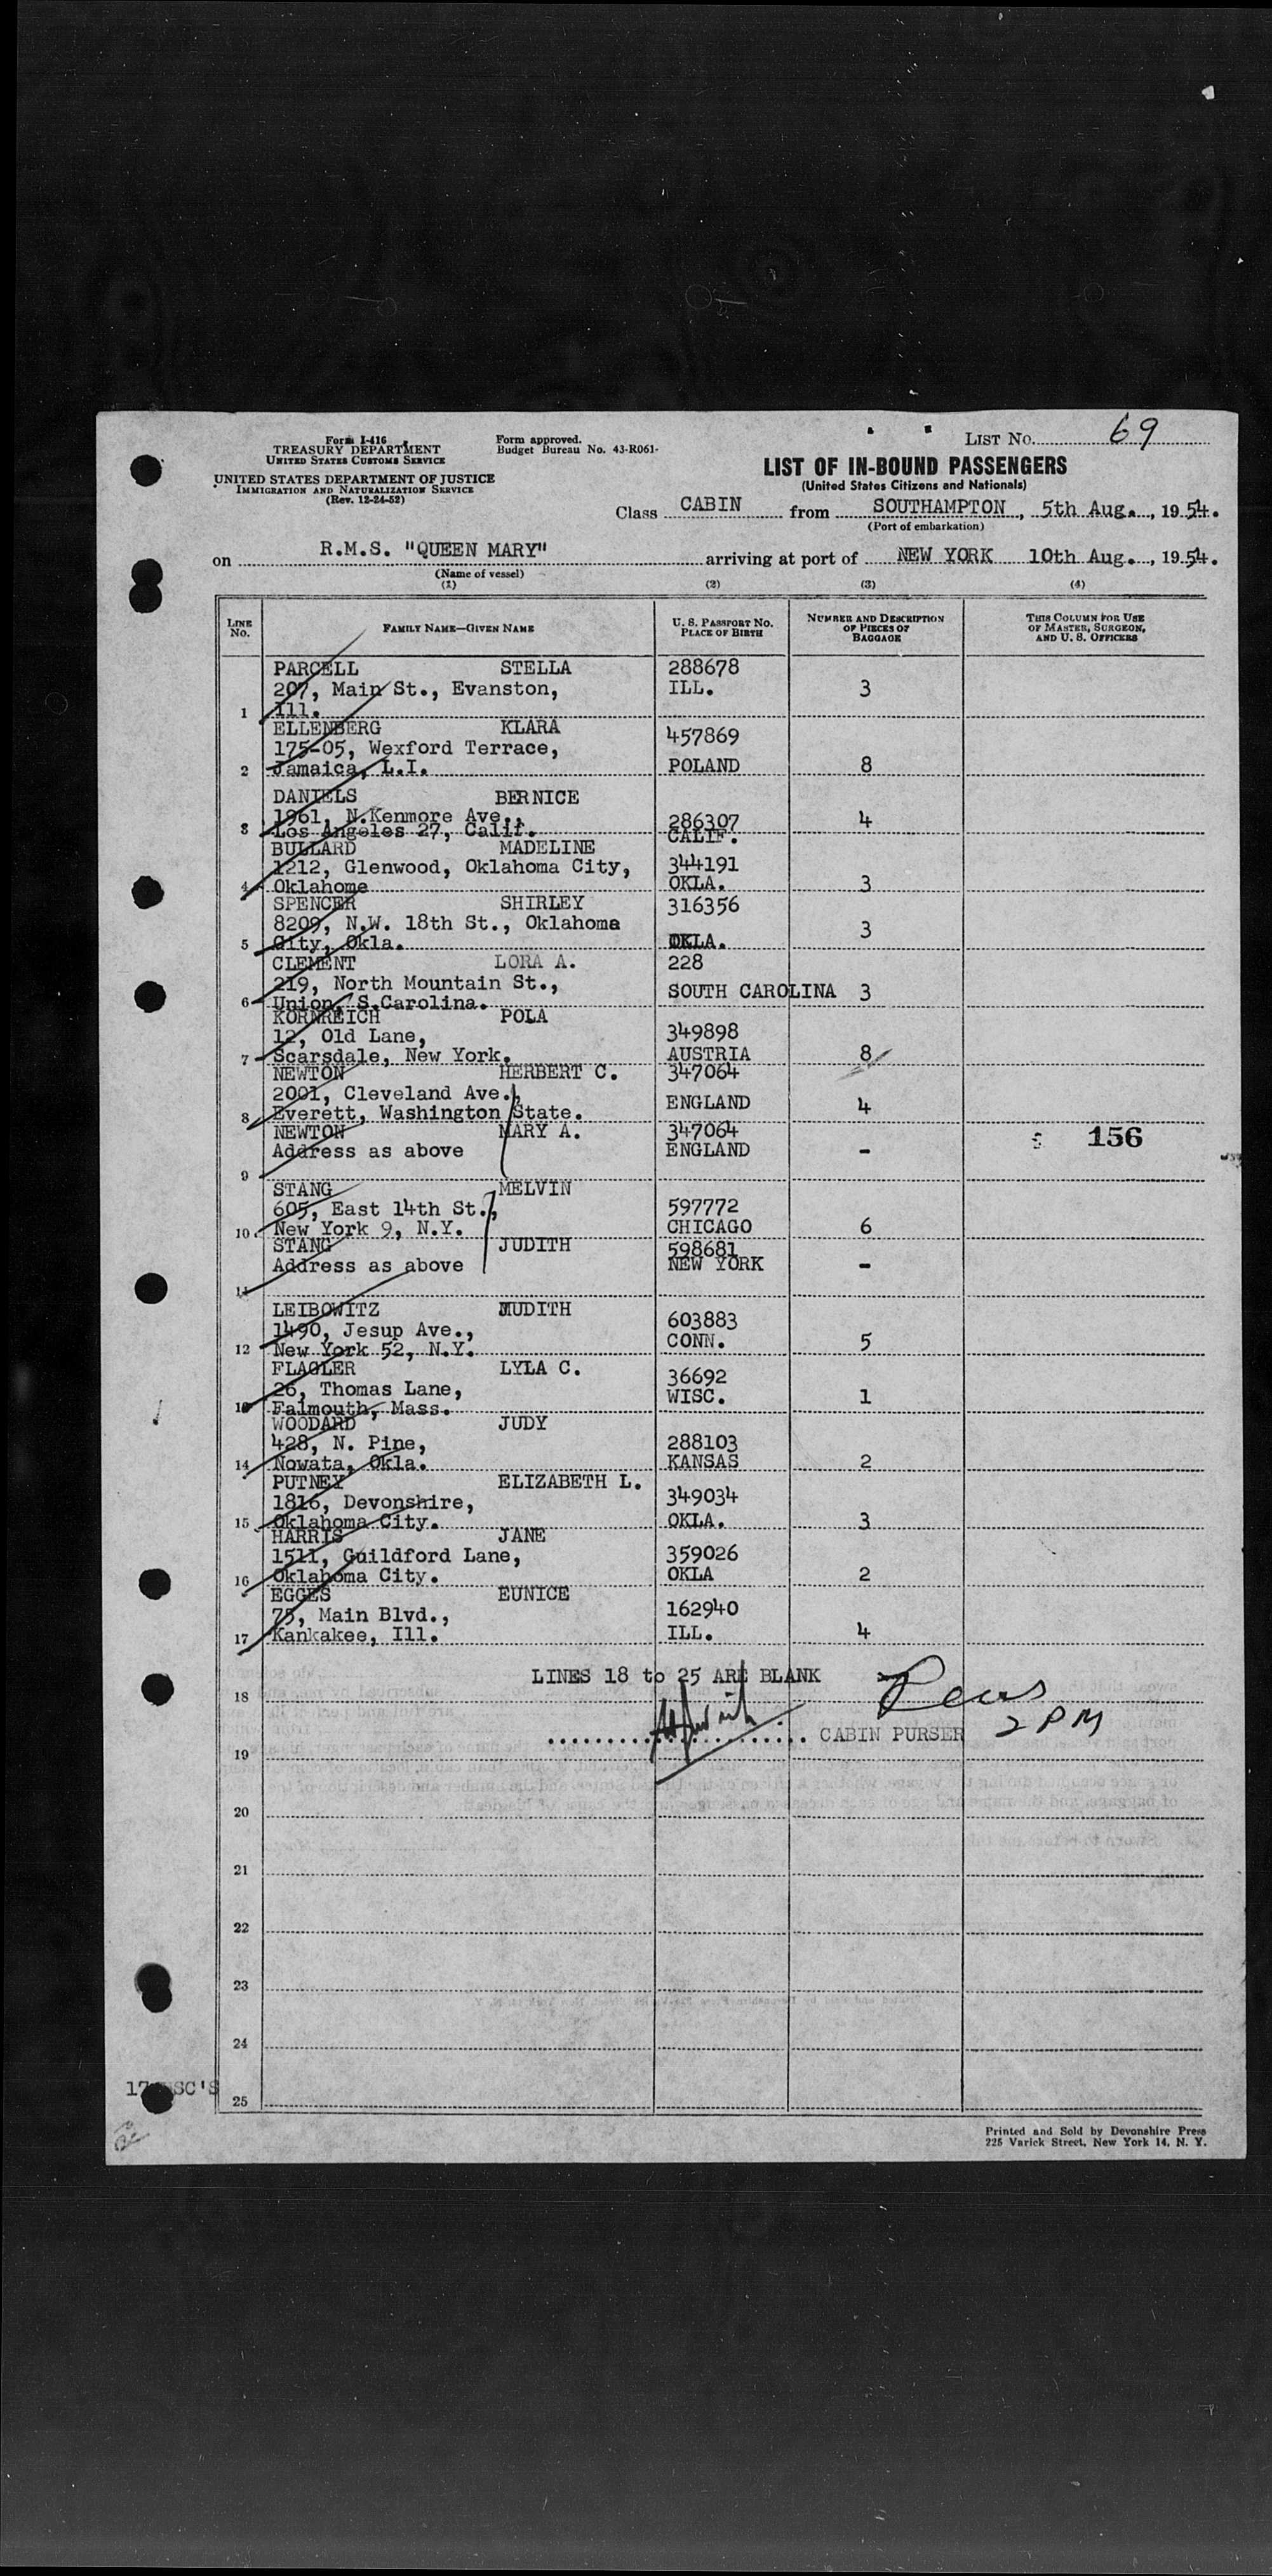 Form I-416
TREASURY DEPARTMENT
UNITED STATES CUSTOMS SERVICE
UNITED STATES DEPARTMENT OF JUSTICE
IMMIGRATION AND NATURALIZATION SERVICE
(Rev. 12-24-52)
Form approved.
Budget Bureau No. 43-R061-
LIST No. 69
LIST OF IN-BOUND PASSENGERS
(United States Citizens and Nationals)
Class CABIN from SOUTHAMPTON, 5th Aug., 1954.
(Port of embarkation)
on R.M.S. "QUEEN MARY" arriving at port of NEW YORK 10th Aug., 1954.
(Name of vessel)
(1) (2) (3) (4)
LINE No. FAMILY NAME—GIVEN NAME U. S. PASSPORT NO. PLACE OF BIRTH NUMBER AND DESCRIPTION OF PIECES OF BAGGAGE THIS COLUMN FOR USE OF MASTER, SURGEON, AND U. S. OFFICERS
PARCELL STELLA 288678
207, Main St., Evanston, ILL. 3
1 Ill.
ELLENBERG KLARA 457869
175-05, Wexford Terrace,
2 Jamaica, L.I. POLAND 8
DANIELS BERNICE
1961, N.Kenmore Ave., 286307 4
3 Los Angeles 27, Calif. CALIF.
BULLARD MADELINE
1212, Glenwood, Oklahoma City, 344191
4 Oklahome OKLA. 3
SPENCER SHIRLEY 316356
8209, N.W. 18th St., Oklahoma 3
5 City, Okla. OKLA.
CLEMENT LORA A. 228
219, North Mountain St., SOUTH CAROLINA 3
6 Union, S.Carolina.
KORNREICH POLA
12, Old Lane, 349898
7 Scarsdale, New York. AUSTRIA 8
NEWTON HERBERT C. 347064
2001, Cleveland Ave., ENGLAND 4
8 Everett, Washington State.
NEWTON MARY A. 347064
Address as above ENGLAND - 156
9
STANG MELVIN
605, East 14th St., 597772
10 New York 9, N.Y. CHICAGO 6
STANG JUDITH 598681
Address as above NEW YORK -
11
LEIBOWITZ JUDITH
1490, Jesup Ave., 603883
12 New York 52, N.Y. CONN. 5
FLAGLER LYLA C.
26, Thomas Lane, 36692
13 Falmouth, Mass. WISC. 1
WOODARD JUDY
428, N. Pine, 288103
14 Nowata, Okla. KANSAS 2
PUTNEY ELIZABETH L.
1816, Devonshire, 349034
15 Oklahoma City. OKLA. 3
HARRIS JANE
1511, Guildford Lane, 359026
16 Oklahoma City. OKLA 2
EGGES EUNICE
75, Main Blvd., 162940
17 Kankakee, Ill. ILL. 4
LINES 18 to 25 ARE BLANK
18
CABIN PURSER 2 PM
19
20
21
22
23
24
25
Printed and Sold by Devonshire Press
225 Varick Street, New York 14, N. Y.